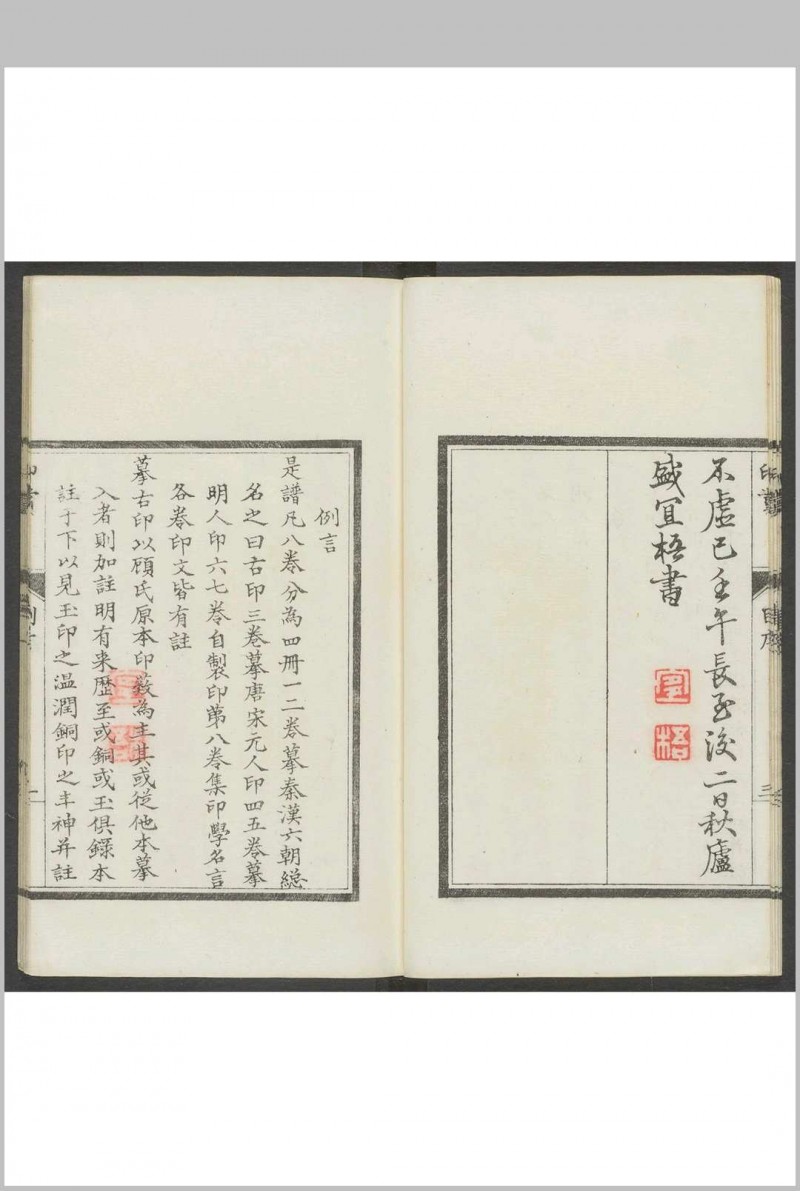 不虛已壬午長至後二日秋廬
盛宜梧書
宜
梧
例言
是譜凡八卷分為四冊一二卷摹秦漢六朝總
名之曰古印三卷摹唐宋元人印四五卷摹
明人印六七卷自製印第八卷集印學名言
各卷印文皆有註
摹古印以顧氏原本印藪為主其或從他本摹
入者則加註明有来歷至或銅或玉俱錄本
註于下以見玉印之温潤銅印之丰神并註